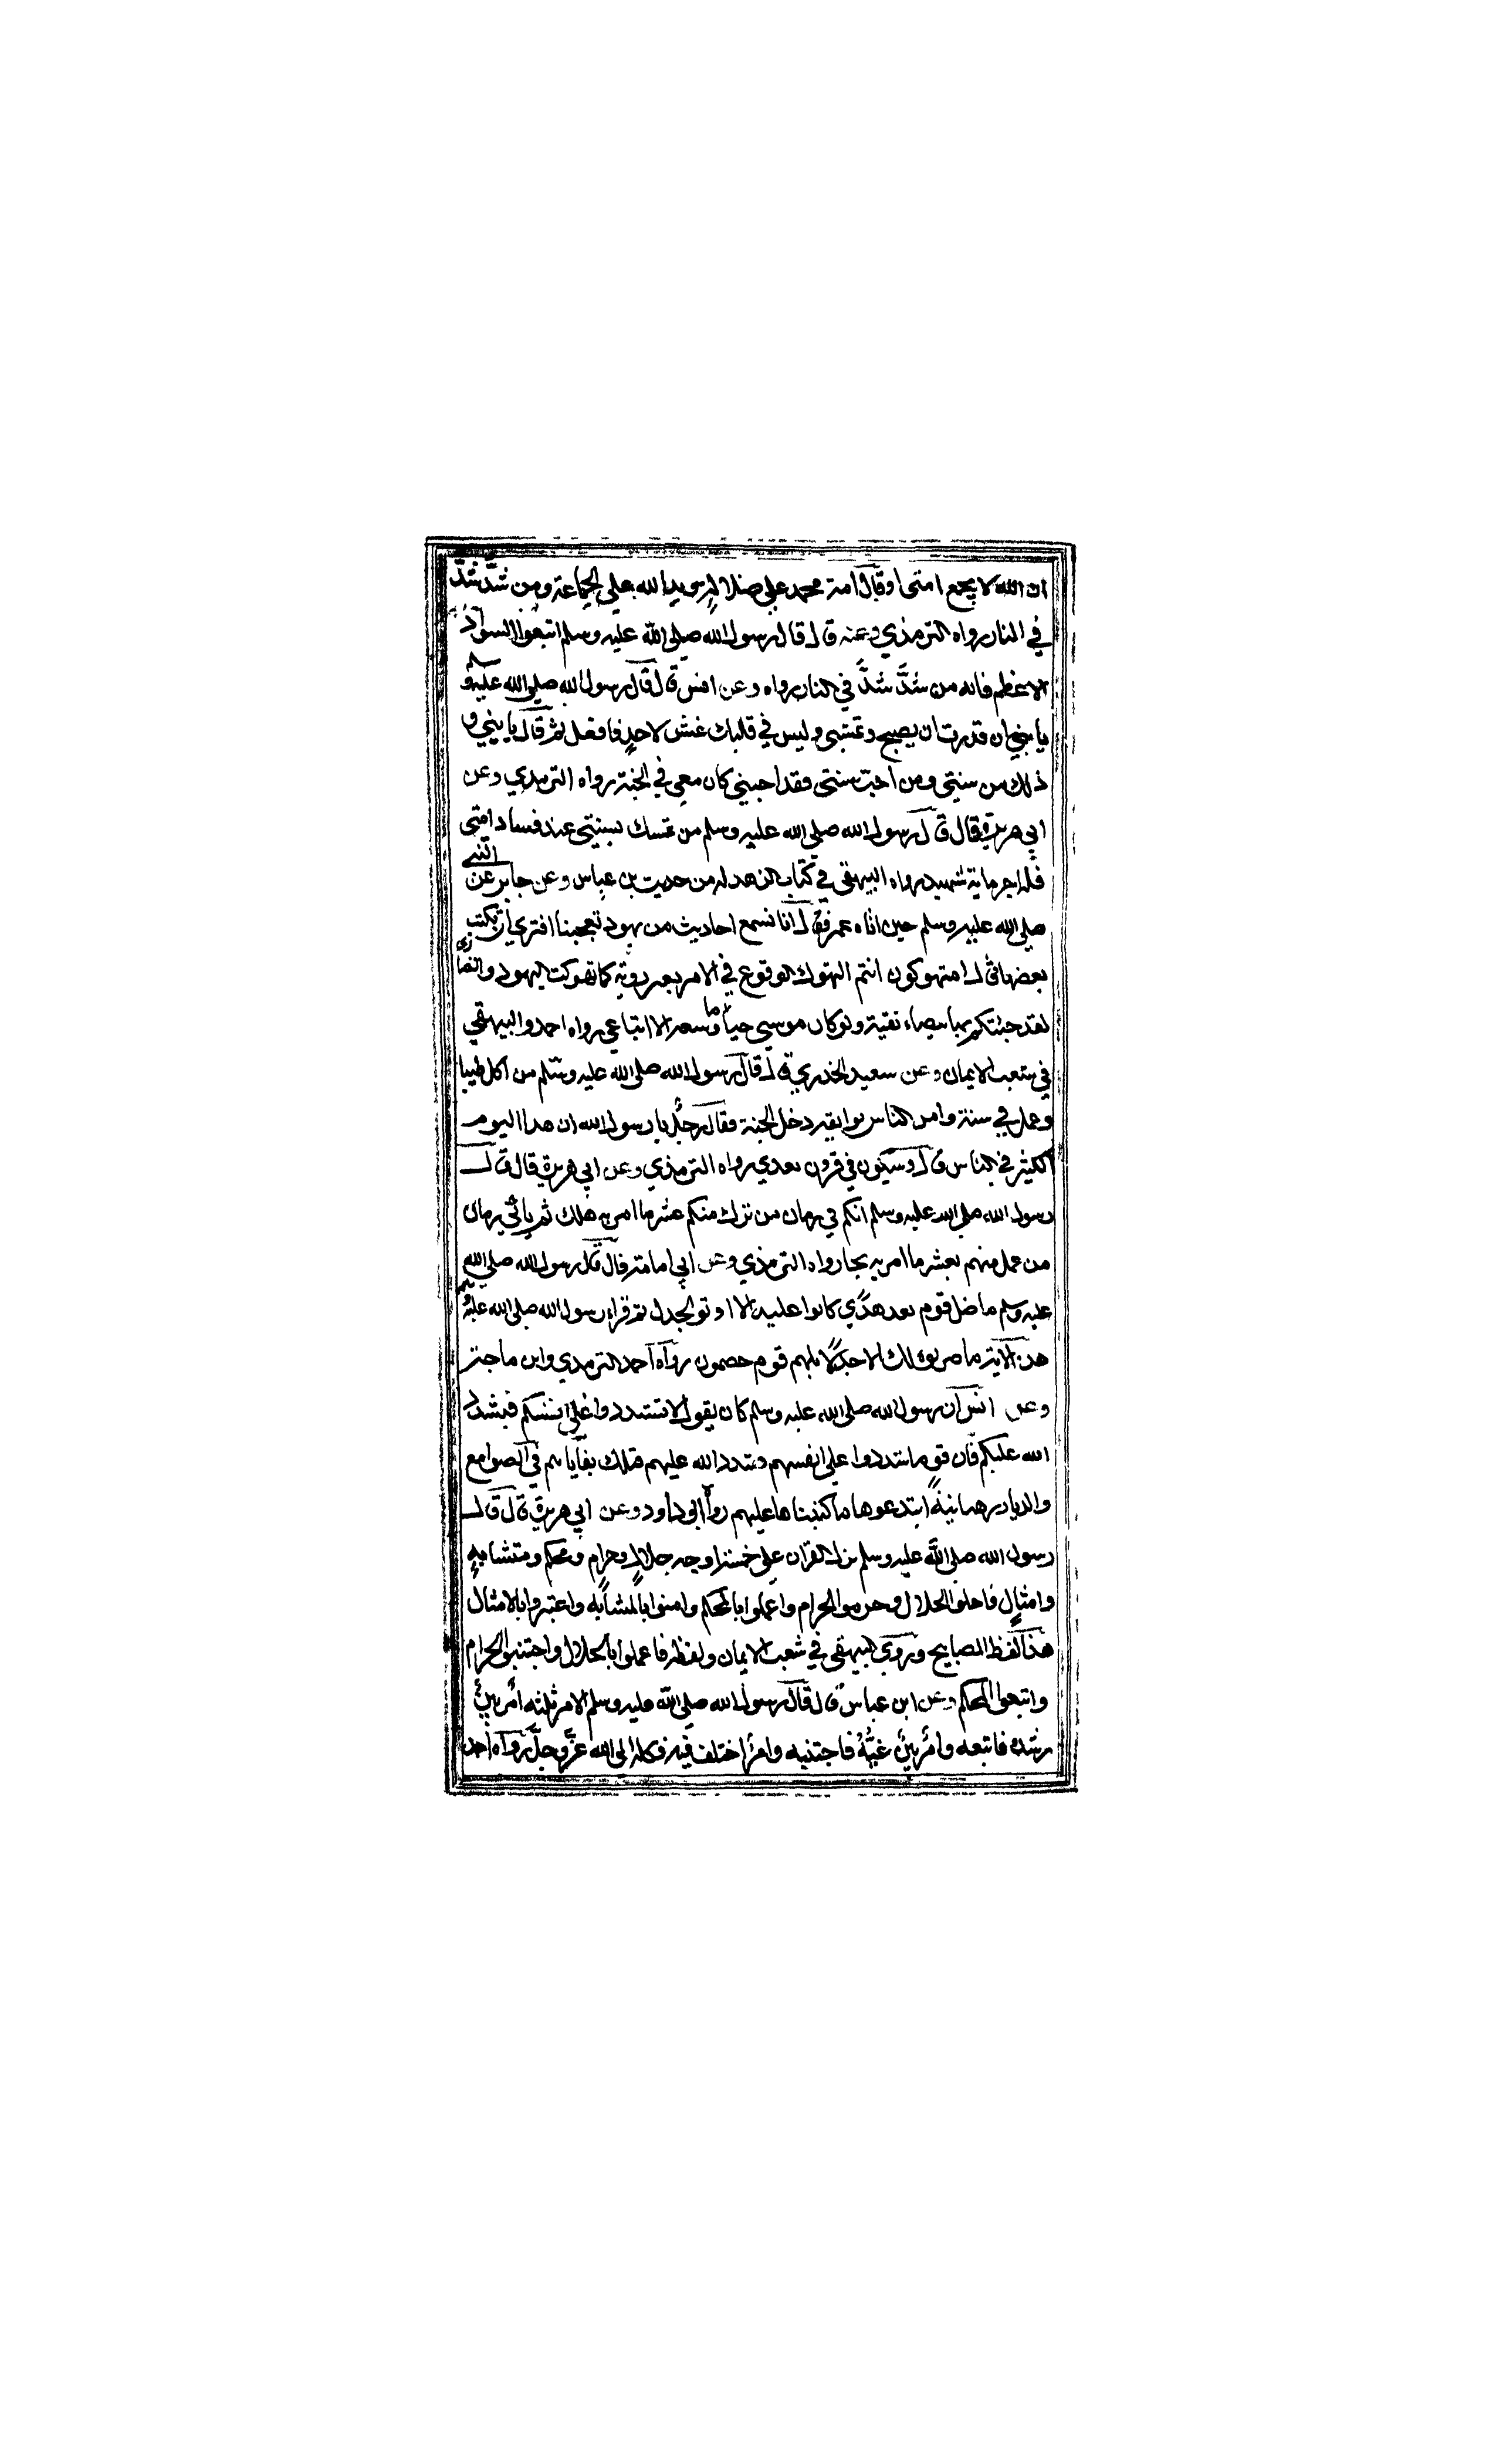 ان الله لا يجمع امتي او قال امة محمد علي ضلالة ويد الله علي الجماعة ومن شذّ شذّ
في النار رواه الترمذي وعنه قال قال رسول الله صلي الله عليه وسلم اتبعوا السواد
الاعظم فانه من شذّ شذّ في النار رواه وعن انس قال قال رسول الله صلي الله عليه وسلم
يا بني ان قدرت ان يصبح وتمسي وليس في قلبك غش لاحدٍ فافعل ثم قال يا بني و
ذلك من سنتي ومن احب سنتي فقد احبني كان معي في الجنة رواه الترمذي وعن
ابي هريرة قال قال رسول الله صلي الله عليه وسلم من تمسك بسنتي عند فساد امتي
فله اجر ماية شهيد رواه البيهقي في كتاب الزهد له من حديث بن عباس وعن جابر عن النبي
صلي الله عليه وسلم حين اتاه عمر فقال انا نسمع احاديث من يهود تعجبنا افتري ان نكتب
بعضها قال امتهوكون انتم التهوك الوقوع في الامر بغير روية كما تهوكت اليهود والنصاري
لقد جئتكم بها بيضاء نقية ولو كان موسي حيا ما وسعه الا اتباعي رواه احمد والبيهقي
في شعب الايمان وعن سعيد الخدري قال قال رسول الله صلي الله عليه وسلم من اكل طيبا
وعمل في سنة وامن الناس بوايقه دخل الجنة فقال رجل يا رسول الله ان هذا اليوم
لكثير في الناس قال وسيكون في قرون بعدي رواه الترمذي وعن ابي هريرة قال قال
رسول الله صلي الله عليه وسلم انكم في زمان من ترك منكم عشر ما امر به هلك ثم ياتي زمان
من عمل منهم بعشر ما امر به نجا رواه الترمذي وعن ابي امامة قال قال رسول الله صلي الله
عليه وسلم ما ضل قوم بعد هدًي كانوا عليه الا اوتو الجدل ثم قراء رسول الله صلي الله عليه وسلم
هذه الآية ما ضربوه لك الا جدلًا بل هم قوم خصمون رواه احمد الترمذي وابن ماجة
وعن انس ان رسول الله صلي الله عليه وسلم كان يقول لا تشددوا علي انفسكم فيشدد
الله عليكم فان قوما شددوا علي انفسهم فشدد الله عليهم فتلك بقاياهم في الصوامع
والديار رهبانيةً ابتدعوها ما كتبناها عليهم رواه ابو داود وعن ابي هريرة قال قال
رسول الله صلي الله عليه وسلم نزل القران علي خمسة اوجه حلالٍ وحرامٍ ومحكم ومتشابهٍ
وامثالٍ فاحلوا الحلال وحرموا الحرام واعملوا بالمحكم وامنوا بالمتشابه واعتبروا بالامثال
هذا لفظ المصابيح وروي البيهقي في شعب الايمان ولفظه فاعملوا بالحلال واجتنبوا الحرام
واتبعوا المحكم وعن ابن عباس قال قال رسول الله صلي الله عليه وسلم الامر ثلثة امر بين
رشده فاتبعه وامر بين غيّه فاجتنبه وامر اختلف فيه فكله الي الله عزّ وجلّ رواه احمد